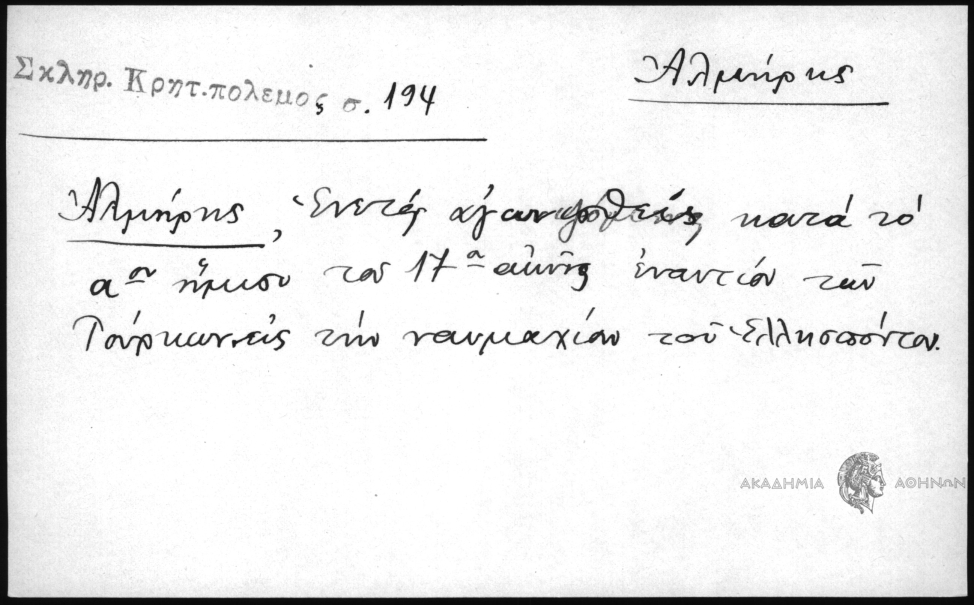 Σκληρ. Κρητ. πολεμος σ. 194
Ἀλμπήρης
Ἀλμπήρης, Ἐνετός ἀγωνισθείς κατά τό
α ον ἥμισυ τοῦ 17 ου αἰῶνος ἐναντίον τῶν
Τούρκων εἰς τήν ναυμαχίαν τοῦ Ἑλλησπόντου.
ΑΚΑΔΗΜΙΑ ΑΘΗΝΩΝ